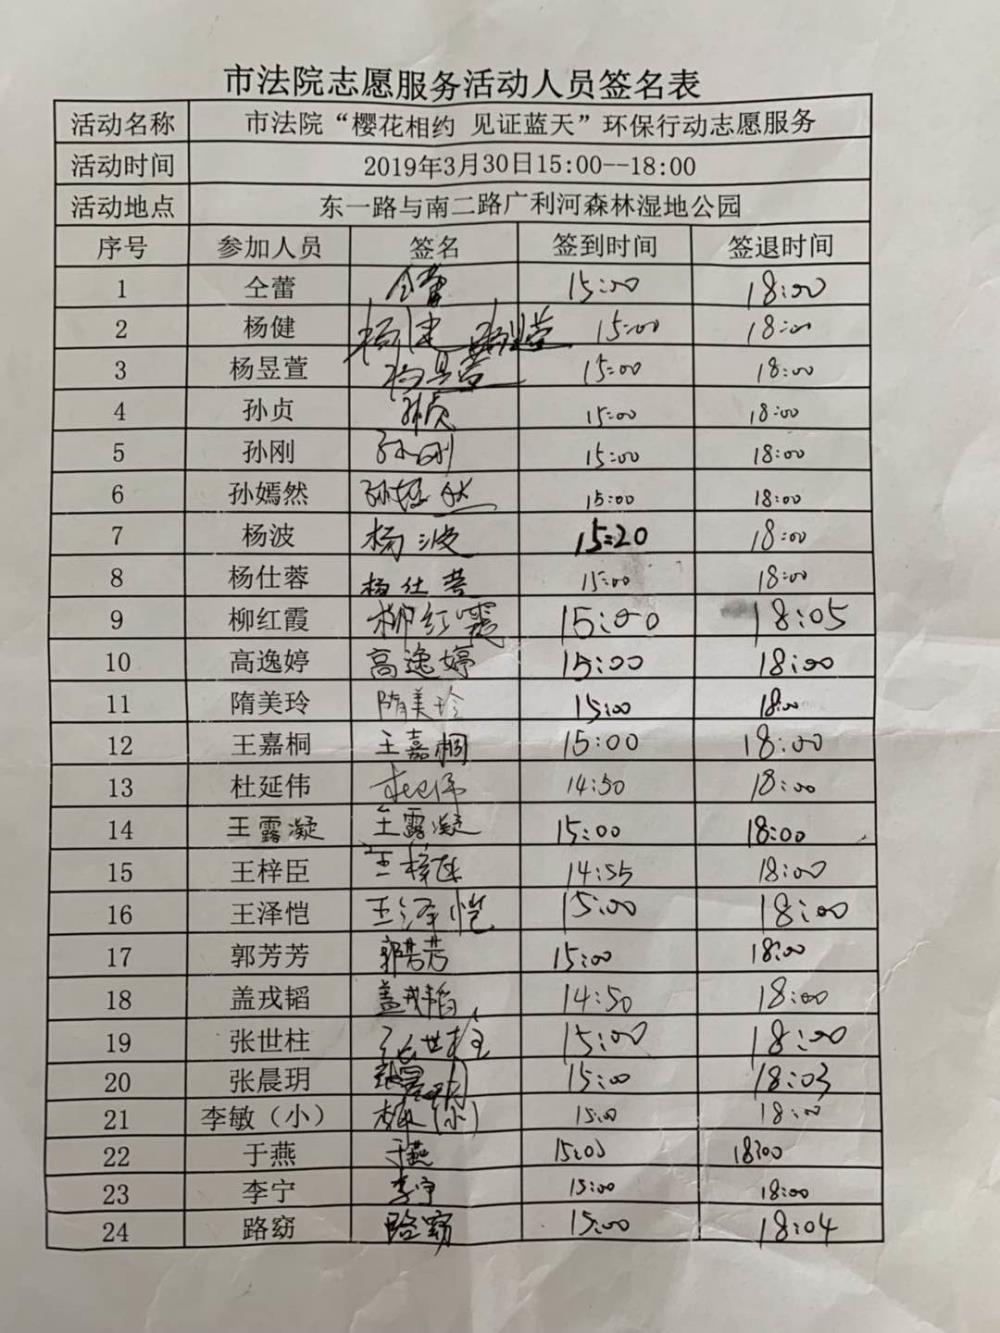 市法院志愿服务活动人员签名表
活动名称 市法院“樱花相约 见证蓝天”环保行动志愿服务
活动时间 2019年3月30日15:00--18:00
活动地点 东一路与南二路广利河森林湿地公园
序号 参加人员 签名 签到时间 签退时间
1 仝蕾 仝蕾 15:00 18:00
2 杨健 杨健 杨昱萱 15:00 18:00
3 杨昱萱 杨昱萱 15:00 18:00
4 孙贞 孙贞 15:00 18:00
5 孙刚 孙刚 15:00 18:00
6 孙嫣然 孙嫣然 15:00 18:00
7 杨波 杨波 15:20 18:00
8 杨仕蓉 杨仕蓉 15:00 18:00
9 柳红霞 柳红霞 15:00 18:05
10 高逸婷 高逸婷 15:00 18:00
11 隋美玲 隋美玲 15:00 18:00
12 王嘉桐 王嘉桐 15:00 18:00
13 杜延伟 杜延伟 14:50 18:00
14 王露凝 王露凝 15:00 18:00
15 王梓臣 王梓臣 14:55 18:00
16 王泽恺 王泽恺 15:00 18:00
17 郭芳芳 郭芳芳 15:00 18:00
18 盖戎韬 盖戎韬 14:50 18:00
19 张世柱 张世柱 15:00 18:00
20 张晨玥 张晨玥 15:00 18:03
21 李敏（小） 李敏（小） 15:00 18:00
22 于燕 于燕 15:00 18:00
23 李宁 李宁 15:00 18:00
24 路窈 路窈 15:00 18:04